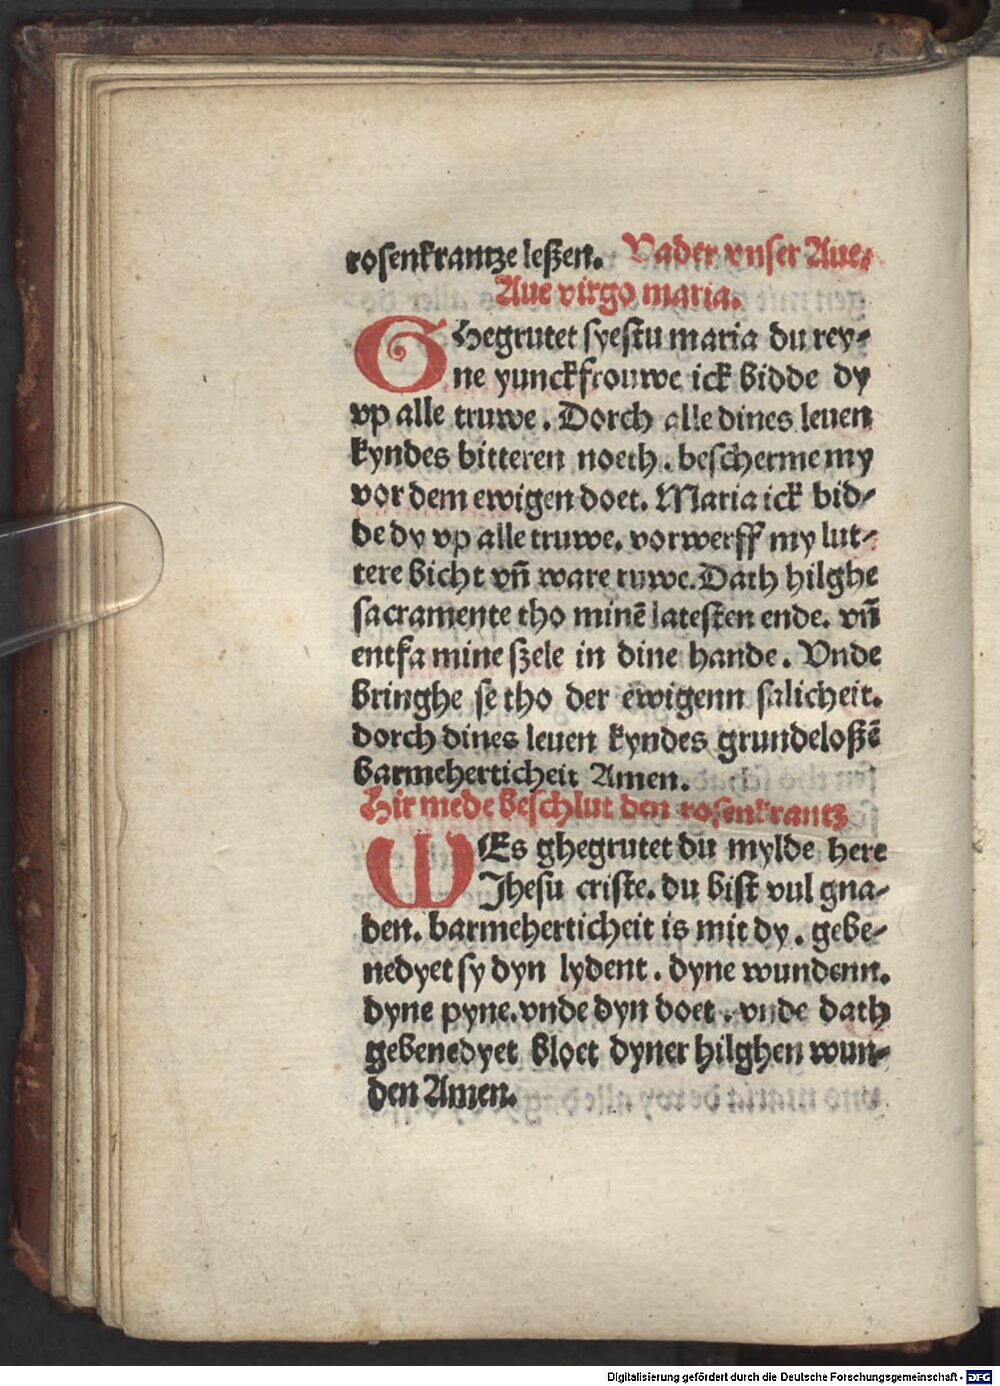 rosenkrantze leßen. Vader vnser Aue⸗
Aue virgo maria.
GHegrutet syestu maria du rey⸗
ne yunckfrouwe ick bidde dy
vp alle truwe. Dorch alle dines leuen
kyndes bitteren noeth. bescherme my
vor dem ewigen doet. Maria ick bid⸗
de dy vp alle truwe. vorwerff my lut⸗
tere bicht vñ ware ruwe. Dath hilghe
sacramente tho minē latesten ende. vñ
entfa mine szele in dine hande. Vnde
bringhe se tho der ewigenn salicheit.
dorch dines leuen kyndes grundeloßē
barmeherticheit Amen.
Hir mede beschlut den rosenkrantz
WEs ghegrutet du mylde here
Jhesu criste. du bist vul gna⸗
den. barmeherticheit is mit dy. gebe⸗
nedyet sy dyn lydent. dyne wundenn.
dyne pyne. vnde dyn doet. vnde dath
gebenedyet bloet dyner hilghen wun⸗
den Amen.
Digitalisierung gefördert durch die Deutsche Forschungsgemeinschaft - DFG